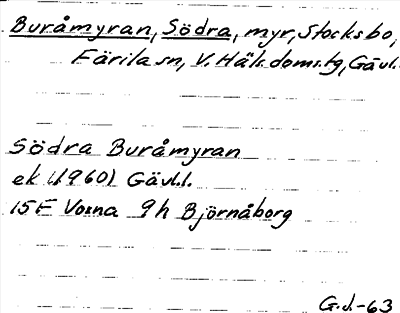 Buråmyran, Södra, myr, Stocksbo,
Färila sn, V. Häls. doms.tg, Gävl.
Södra Buråmyran
ek (1960) Gävl.l.
15F Voxna 9h Björnåborg
G.J.-63